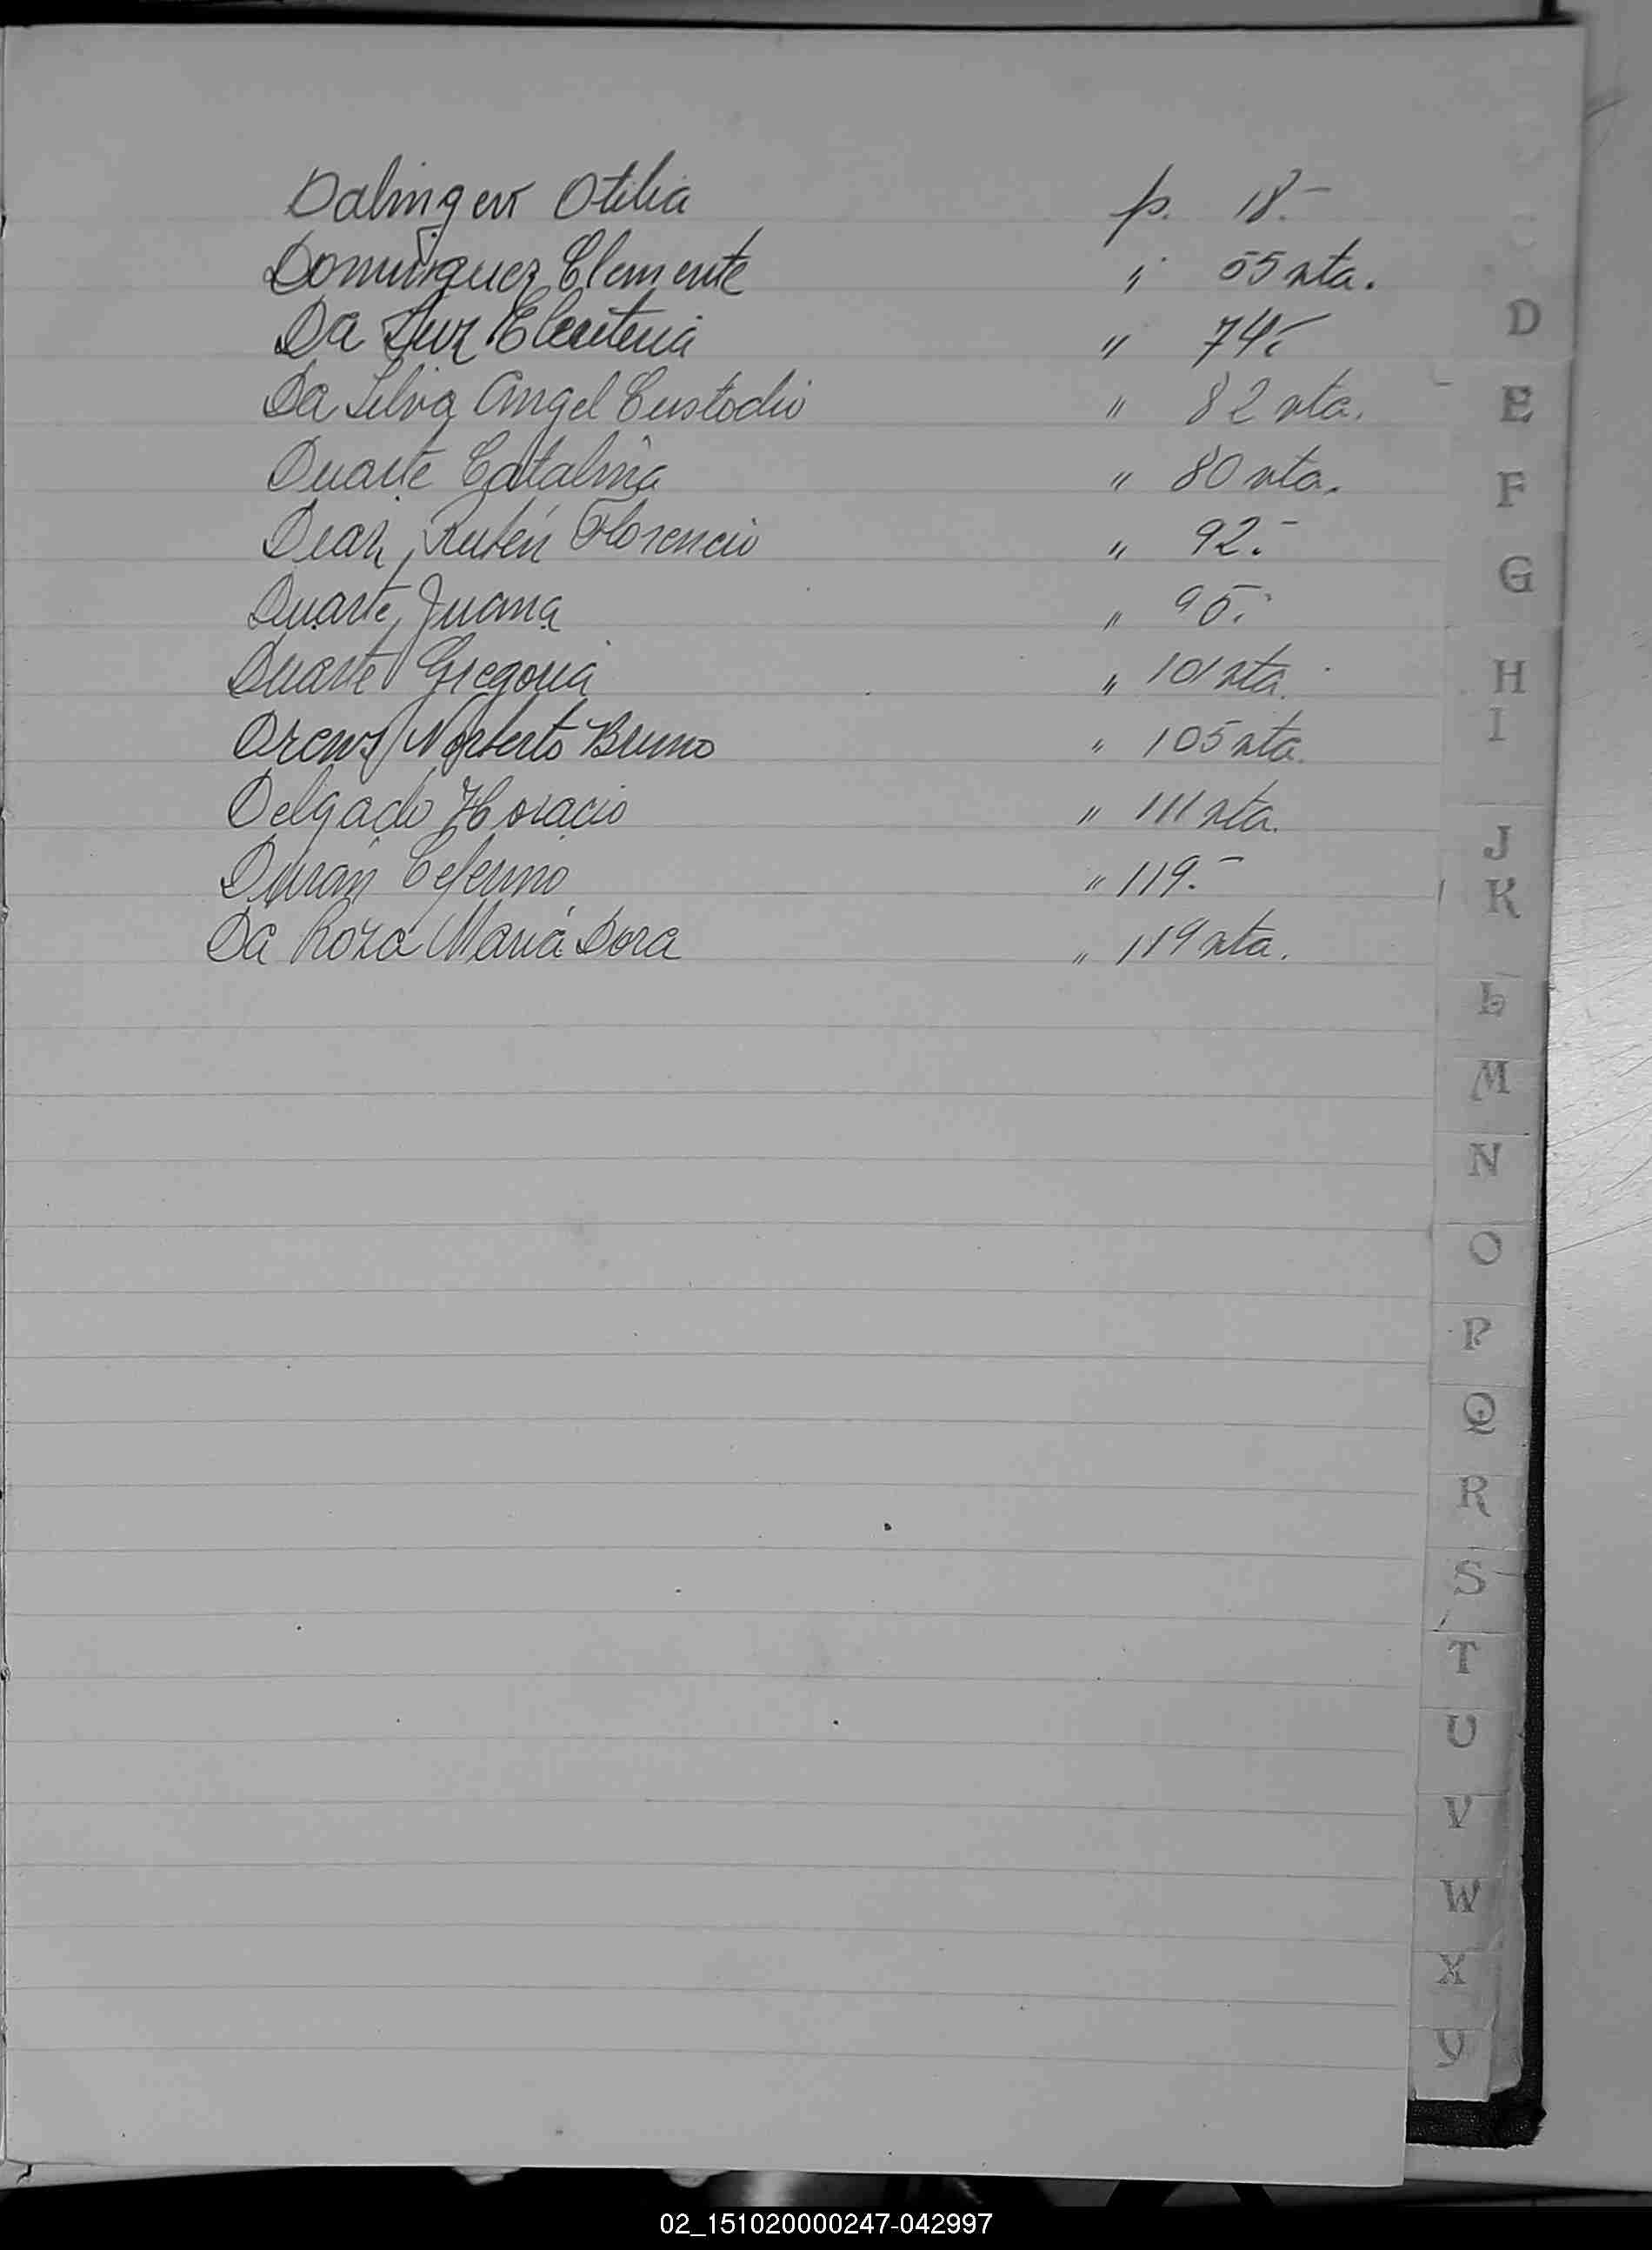 Dalinger Otilia p. 18.-
Dominguez Clemente " 55 vta.
Da Luz Eleuteria " 74.-
Da Silva Angel Custodio " 82 vta.
Duarte Catalina " 80 vta.
Diaz, Rubén Florencio " 92.-
Duarte, Juana " 95.-
Duarte Gregoria " 101 vta.
Drews Norberto Bruno " 105 vta.
Delgado Horacio " 111 vta.
Durán Ceferino " 119.-
Da Roza María Dora " 119 vta.
D
E
F
G
H
I
J
K
L
M
N
O
P
Q
R
S
T
U
V
W
X
Y
02_151020000247-042997